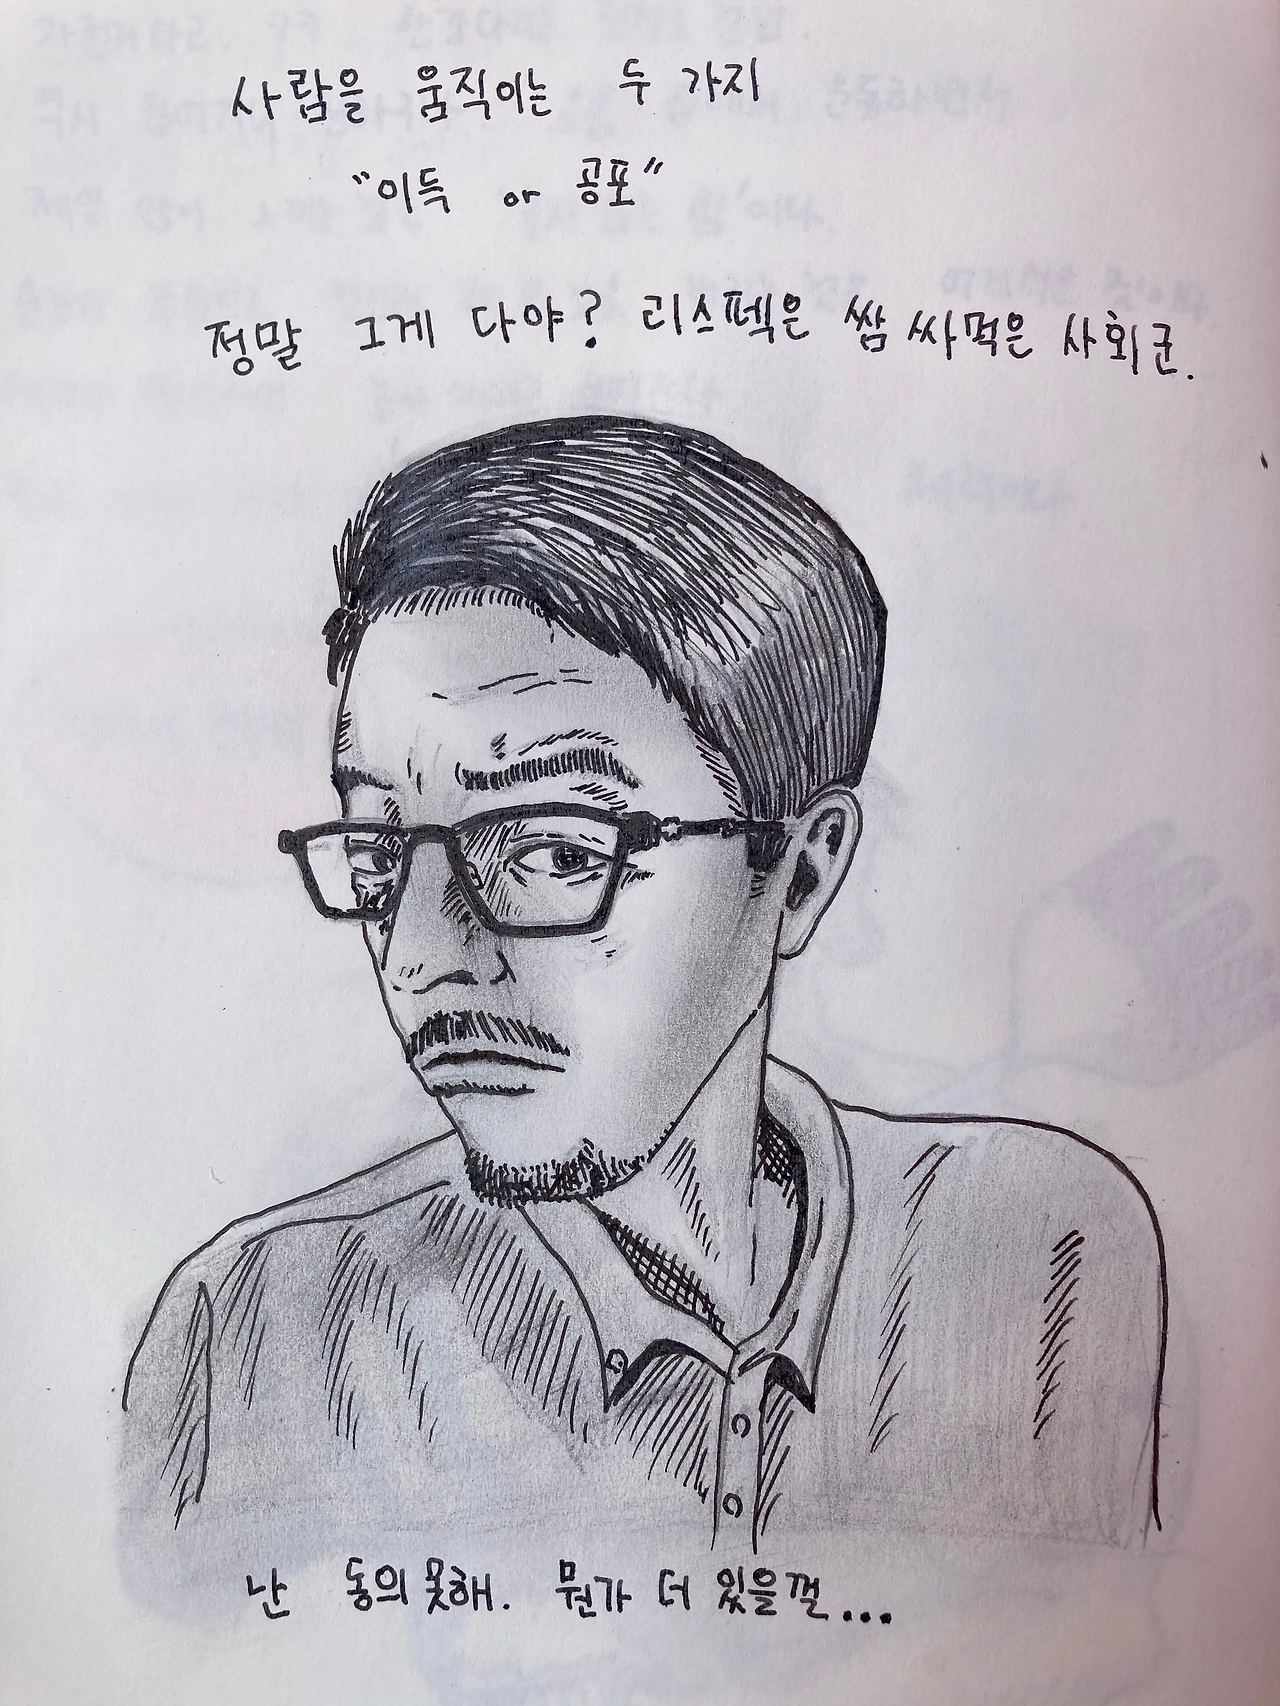 사람을 움직이는 두 가지
"이득 or 공포"
정말 그게 다야? 리스펙은 쌈 싸먹은 사회군.
난 동의 못해. 뭔가 더 있을껄...